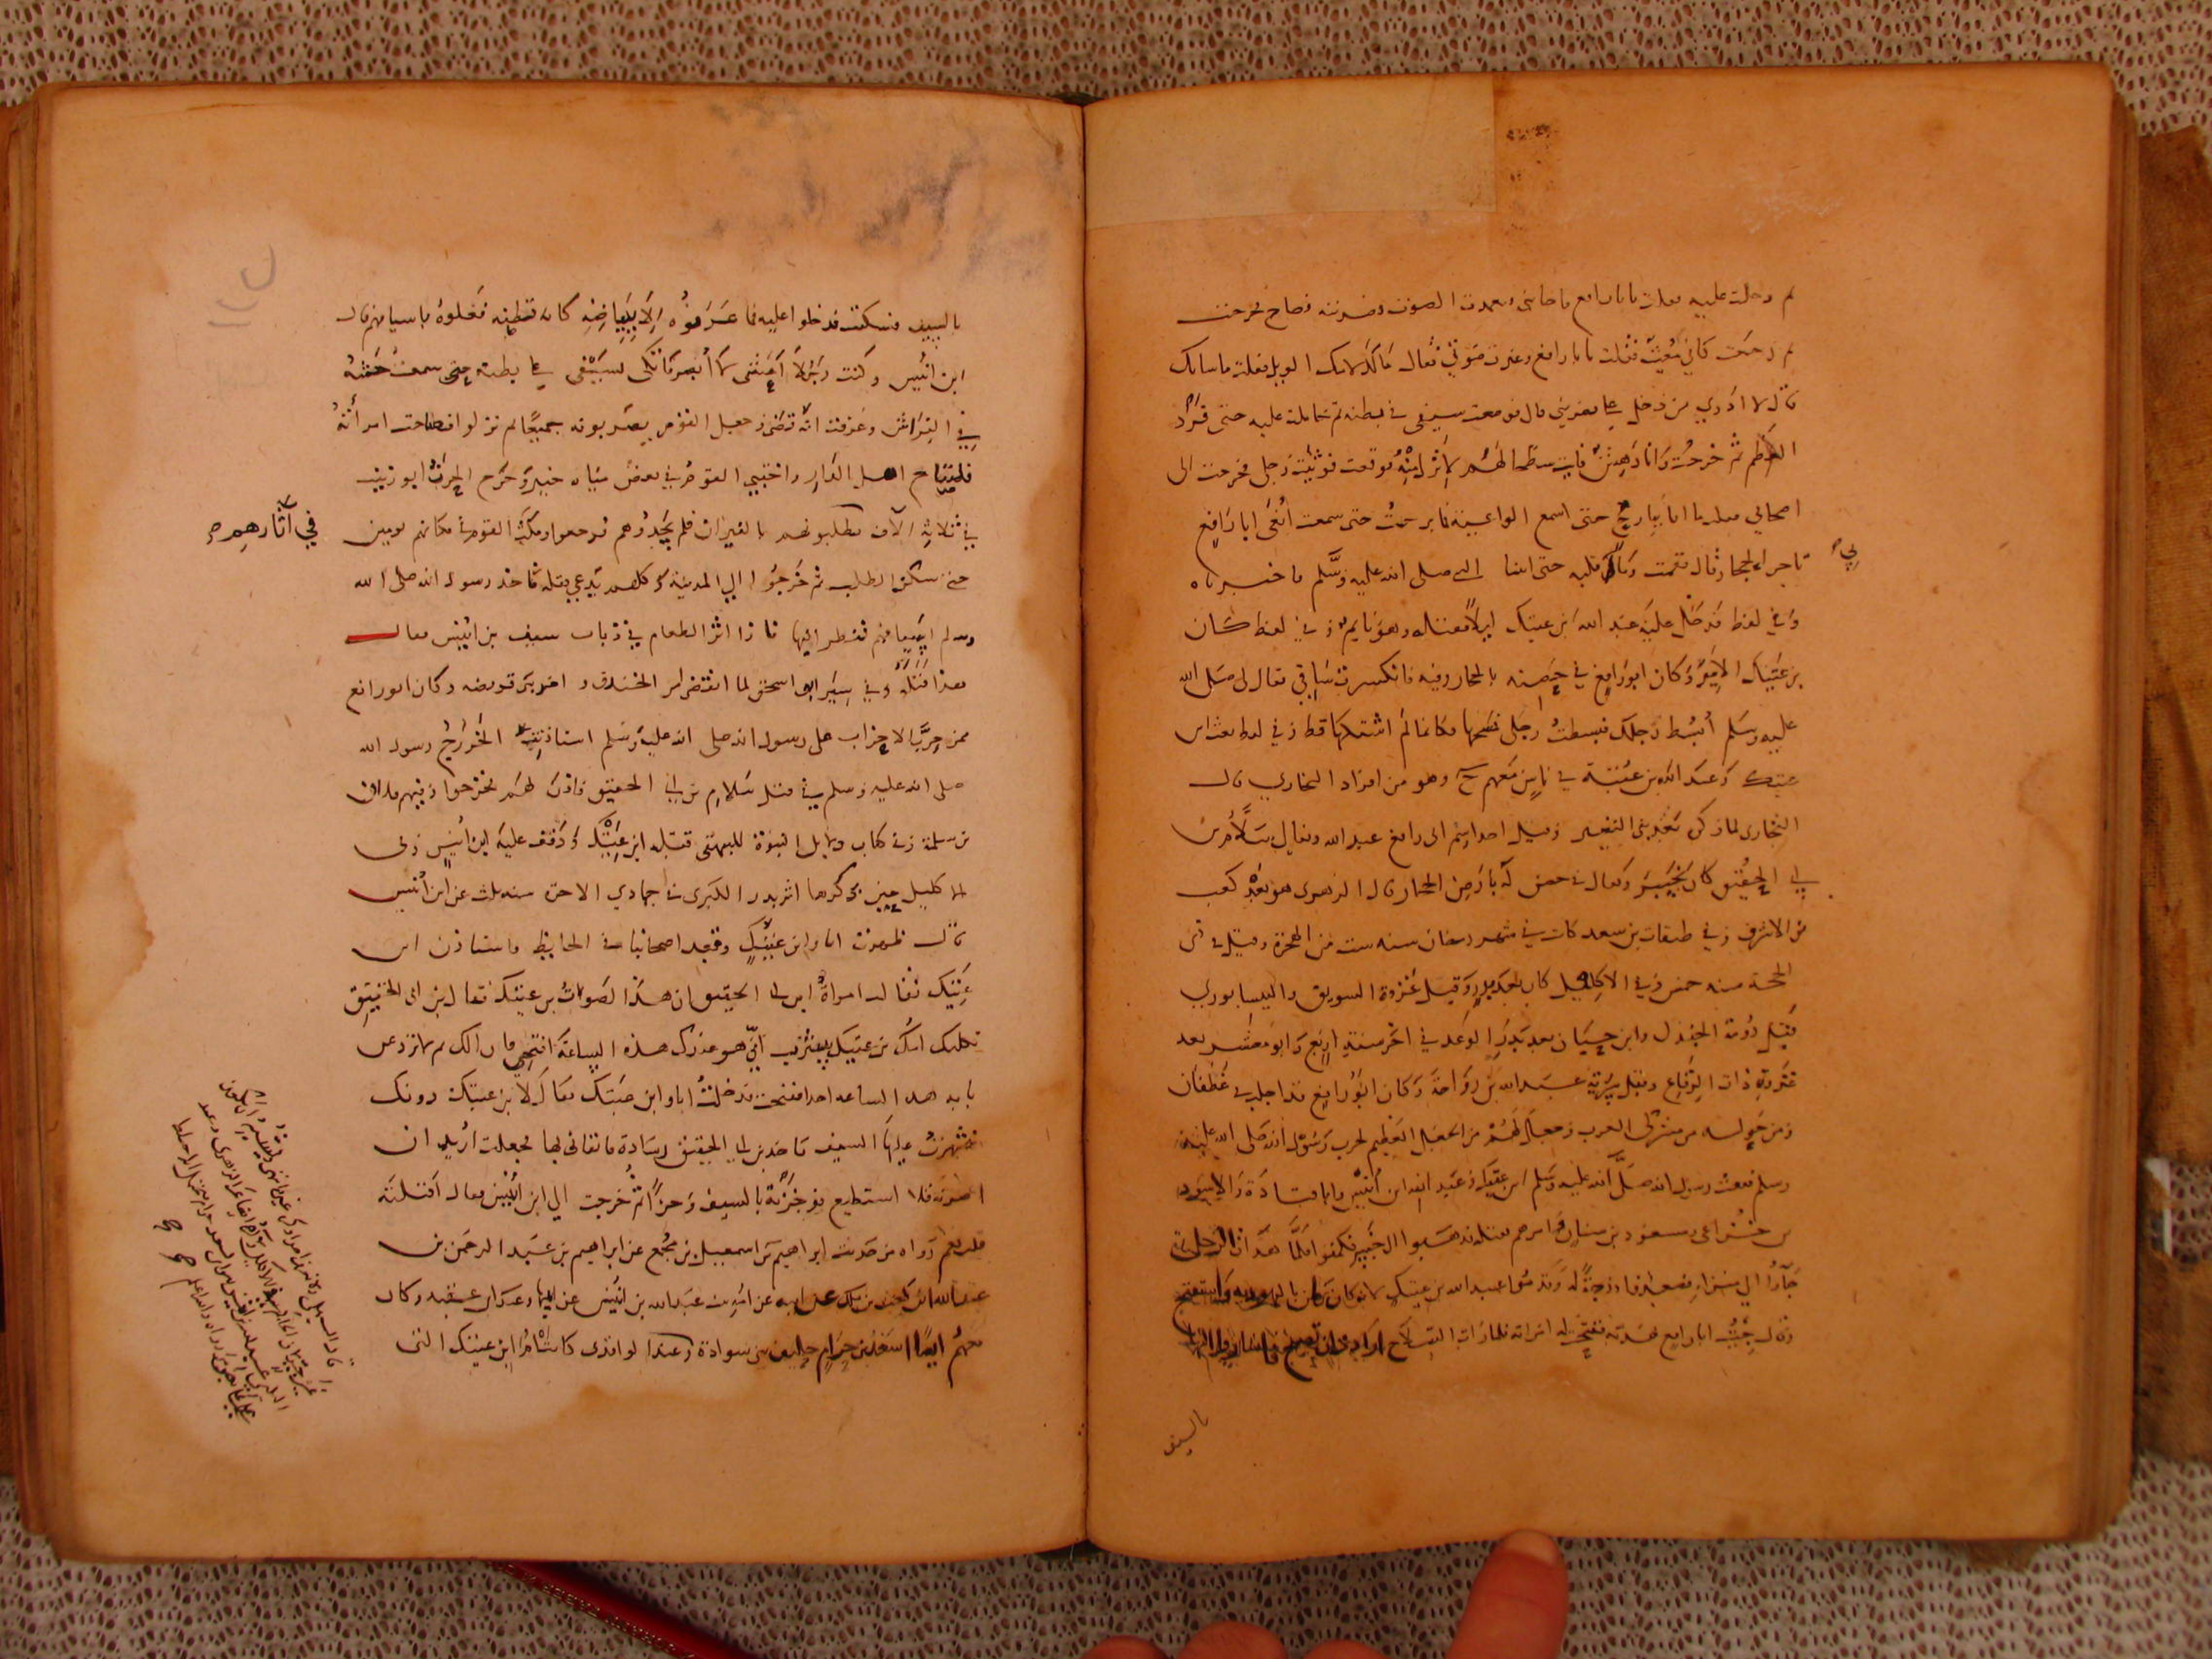 ثم دخلت عليه فقلت يا ابا رافع فاجابني فعمدت الصوت فضربته فصاح فخرجت
ثم رجعت كاني مغيث فقلت يا ابا رافع وغيرت صوتي فقال مالك لامك الويل فقلت ما شانك
قال لا ادري من دخل علي فضربني قال فوضعت سيفي في بطنه ثم تحاملت عليه حتى قرع
العظم ثم خرجت وانا دهش فاتيت سلما لهم لانزل منه فوقعت فوثئت رجلي فخرجت الى
اصحابي فقلت ما انا ببارح حتى اسمع الواعية فما برحت حتى سمعت انعى ابا رافع
تاجر اهل الحجاز قال فقمت وما بي قلبه حتى اتينا النبي صلى الله عليه وسلم فاخبرناه
بي
وفي لفظ فدخل عليه عبد الله ابن عتيك ليلا فقتله وهو نايم وفي لفظ كان
بن عتيك الامير وكان ابو رافع في حصنه بالحجاز وفيه فانكسرت ساقي فقال لي صلى الله
عليه وسلم ابسط رجلك فبسطت رجلي فمسحها فكانما لم اشتكها قط وفي لفظ بعث ابن
عتيك وعبد الله بن عتبة في ناس معهم وهو من افراد البخاري قال
البخاري لما ذكر بني النضير وقيل اسم ابي رافع عبد الله ويقال سلام بن
ابي الحقيق كان بخيبر ويقال في حصن له بارض الحجاز قال الزهري هو بعد كعب
بن الاشرف وفي طبقات بن سعد كانت في شهر رمضان سنه ست من الهجرة وقيل في ذي
الحجة سنه خمس وفي الاكليل كان بعد بدر وقيل غزوة السويق والنيسابوري
قبل دومة الجندل وابن حبان بعد بدر الوعد في اخر سنة اربع وابو معشر بعد
غزوة ذات الرقاع وقبل سرية عبد الله بن رواحة وكان ابو رافع قد اجلب في غطفان
ومن حوله من مشركي العرب وجعل لهم من الجعل العظيم لحرب رسول الله صلى الله عليه
وسلم فبعث رسول الله صلى الله عليه وسلم ابن عتيك وعبد الله ابن انيس وابا قتادة والاسود
بن خزاعي ومسعود بن سنان وامرهم بقتله فذهبوا الى خيبر فكمنوا فلما هدات الرجل
جاوا الى منزله فصعدوا درجة له وقدموا عبد الله بن عتيك لانه كان يرطن باليهودية واستفتح
وقال جيت ابا رافع بهدية ففتحت له امراته فلما رات السلاح ارادت ان تصيح فاشاروا اليها
بالسيف
بالسيف فسكتت فدخلوا عليه فما عرفوه الا ببياضه كانه قبطية فعلوه باسيافهم قال
ابن انيس وكنت رجلا اعشى لا ابصر فاتكي بسيفي على بطنه حتى سمعت خشه
في الفراش وعرفت انه قضى وجعل القوم يضربونه جميعا ثم نزلوا فصاحت امراته
فتصايح اهل الدار واختبى القوم في بعض مياه خيبر وخرج الحرث ابو زينب
في ثلاثة الاف يطلبونهم بالنيران فلم يجدوهم فرجعوا ومكث القوم في مكانهم يومين
في آثارهم صح
حتى سكن الطلب ثم خرجوا الى المدينة وكلهم يدعي قتله فاخذ رسول الله صلى الله
وسلم اسيافهم فنظر اليها فاذا اثر الطعام في ذباب سيف بن انيس فقال
هذا قتله وفي سير ابن اسحق لما انقضى امر الخندق وامر بني قريضه وكان ابو رافع
ممن حزب الاحزاب على رسول الله صلى الله عليه وسلم استاذنت الخزرج رسول الله
صلى الله عليه وسلم في قتل سلام بن ابي الحقيق فاذن لهم فخرجوا وفيهم فلان
بن سلمة وفي كتاب دلايل النبوة للبيهقي قتله ابن عتيك ودفف عليه ابن انيس وفي
الاكليل حين ذكرها اثر بدر الكبرى في جمادي الاخرة سنه ثلث عن ابن انيس
قال ظهرت انا وابن عتيك وقعد اصحابنا في الحايط فاستاذن ابن
عتيك فقالت امراة ابن ابي الحقيق ان هذا لصوت بن عتيك فقال بن ابي الحقيق
ثكلتك امك بن عتيك بيثرب انى هو عندك هذه الساعة افتحي فان الكريم لا يرد عن
بابه هذه الساعه احدا ففتحت فدخلت انا وابن عتيك فقال لابن عتيك دونك
فشهرت عليها السيف فاخذ بن ابي الحقيق وسادة فاتقاني بها فجعلت اريد ان
اضربه فلا استطيع فوخزته بالسيف وخزا ثم خرجت الى ابن انيس فقال اقتلته
قلت نعم رواه من حديث ابراهيم بن اسمعيل بن مجمع عن ابراهيم بن عبد الرحمن بن
عبد الله ابن كعب بن ملك عن ابيه عن امه بنت عبد الله بن انيس عن ابيها وعند ابن عقبه وكان
معهم ايضا اسعد بن حرام حليف بني سوادة وعند الواقدي كانت ام ابن عتيك التي